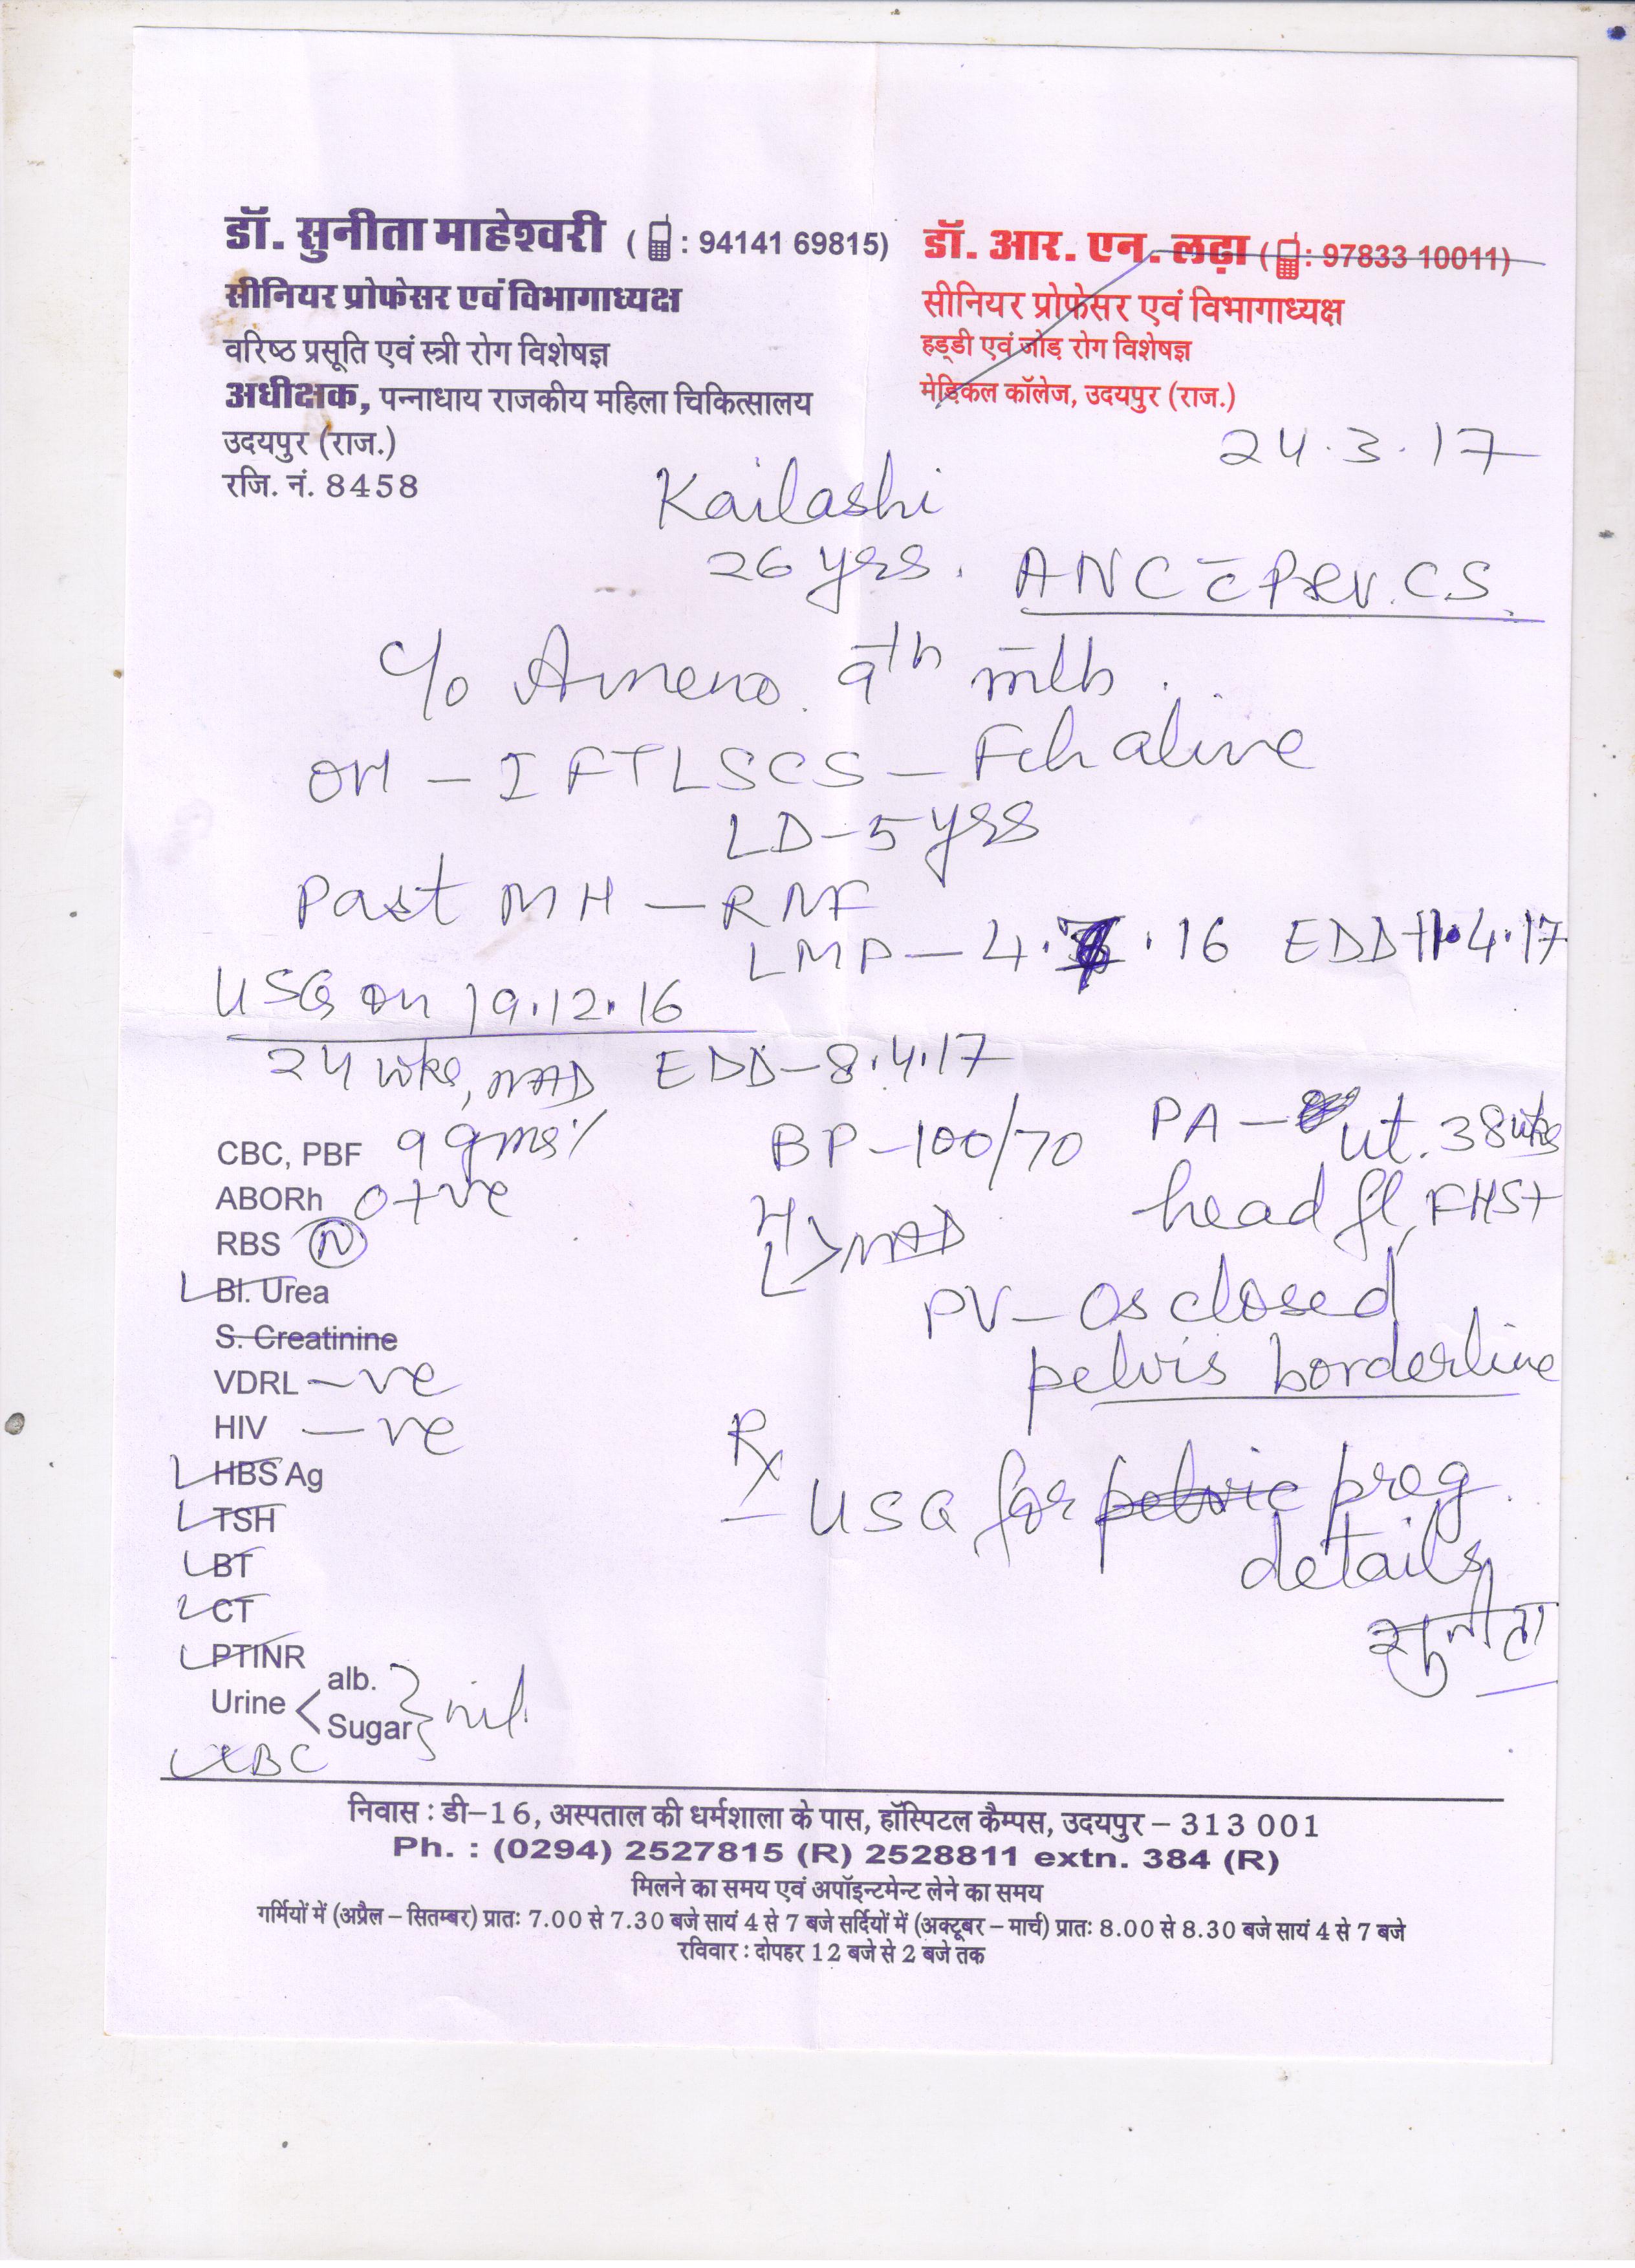 डॉ. सुनीता माहेश्वरी ( : 94141 69815)
सीनियर प्रोफेसर एवं विभागाध्यक्ष
वरिष्ठ प्रसूति एवं स्त्री रोग विशेषज्ञ
अधीक्षक, पन्नाधाय राजकीय महिला चिकित्सालय
उदयपुर (राज.)
रजि. नं. 8458
डॉ. आर. एन. लढ़ा ( : 97833 10011)
सीनियर प्रोफेसर एवं विभागाध्यक्ष
हड्डी एवं जोड़ रोग विशेषज्ञ
मेडिकल कॉलेज, उदयपुर (राज.)
24.3.17
Kailashi
26 yrs. ANC c̄ Prev. CS.
c/o Ameno. 9th mth.
OH - I FTLSCS - Fch alive
LD - 5 yrs
Past MH - RNF
LMP - 4. .16 EDD 11.4.17
USG on 19.12.16
24 wks, NAD EDD - 8.4.17
CBC, PBF 9 gms%
ABORh O+ve
RBS N
Bl. Urea
S. Creatinine
VDRL -ve
HIV -ve
HBS Ag
TSH
BT
CT
PTINR
Urine < alb. Sugar } nil.
BC
BP - 100/70
H L > NAD
PA - ut. 38 wks
head fl, FHS+
PV - Os closed
pelvis borderline
Rx
- USG for pelvic preg.
details
सुनीता
निवास : डी-16, अस्पताल की धर्मशाला के पास, हॉस्पिटल कैम्पस, उदयपुर - 313 001
Ph. : (0294) 2527815 (R) 2528811 extn. 384 (R)
मिलने का समय एवं अपॉइन्टमेन्ट लेने का समय
गर्मियों में (अप्रैल - सितम्बर) प्रातः 7.00 से 7.30 बजे सायं 4 से 7 बजे सर्दियों में (अक्टूबर - मार्च) प्रातः 8.00 से 8.30 बजे सायं 4 से 7 बजे
रविवार : दोपहर 12 बजे से 2 बजे तक